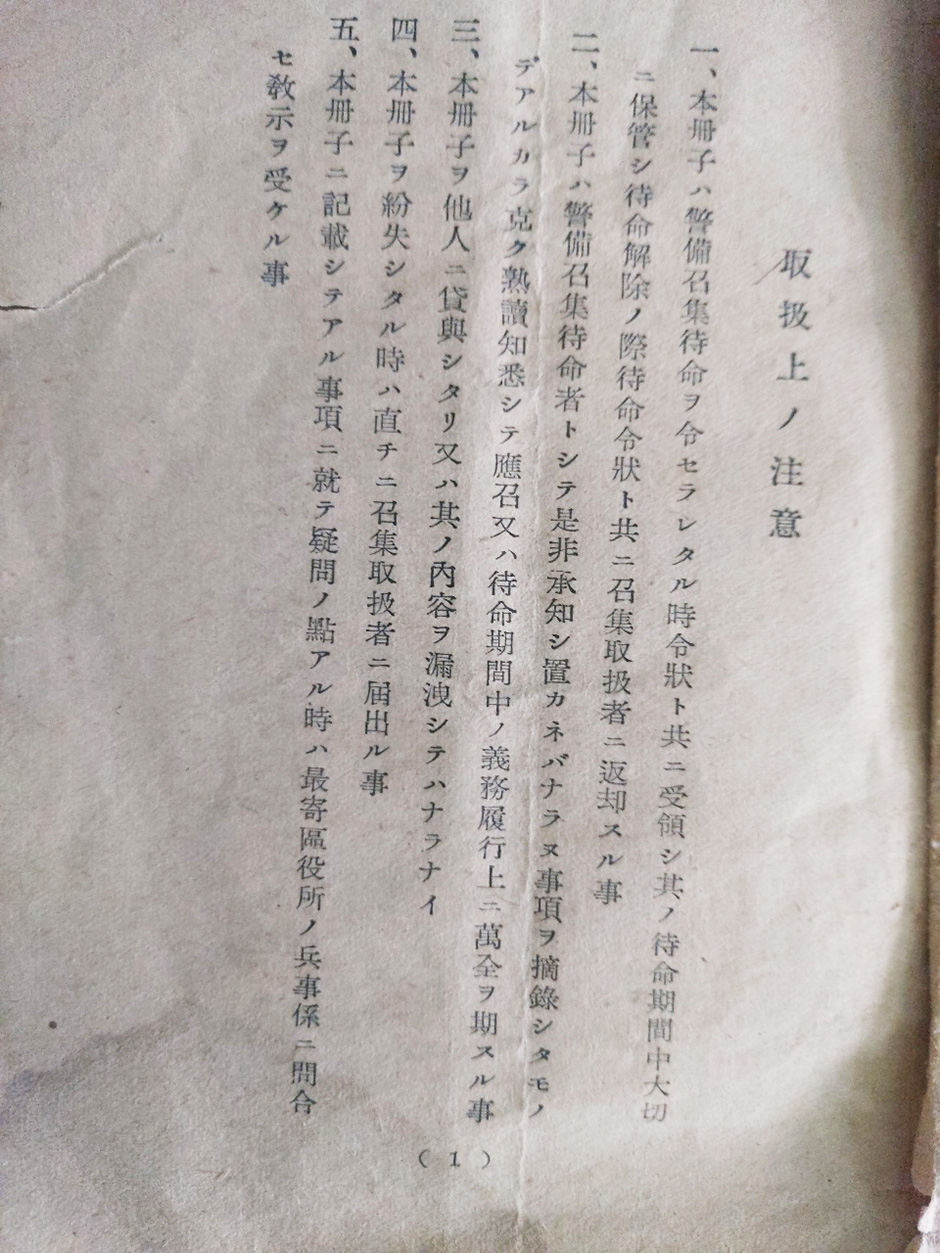 取扱上ノ注意
一、本冊子ハ警備召集待命ヲ令セラレタル時令狀ト共ニ受領シ其ノ待命期間中大切
ニ保管シ待命解除ノ際待命令狀ト共ニ召集取扱者ニ返却スル事
二、本冊子ハ警備召集待命者トシテ是非承知シ置カネバナラヌ事項ヲ摘錄シタモノ
デアルカラ克ク熟讀知悉シテ應召又ハ待命期間中ノ義務履行上ニ萬全ヲ期スル事
三、本冊子ヲ他人ニ貸與シタリ又ハ其ノ內容ヲ漏洩シテハナラナイ
四、本冊子ヲ紛失シタル時ハ直チニ召集取扱者ニ届出ル事
五、本冊子ニ記載シテアル事項ニ就テ疑問ノ點アル時ハ最寄區役所ノ兵事係ニ問合
セ敎示ヲ受ケル事
( 1 )